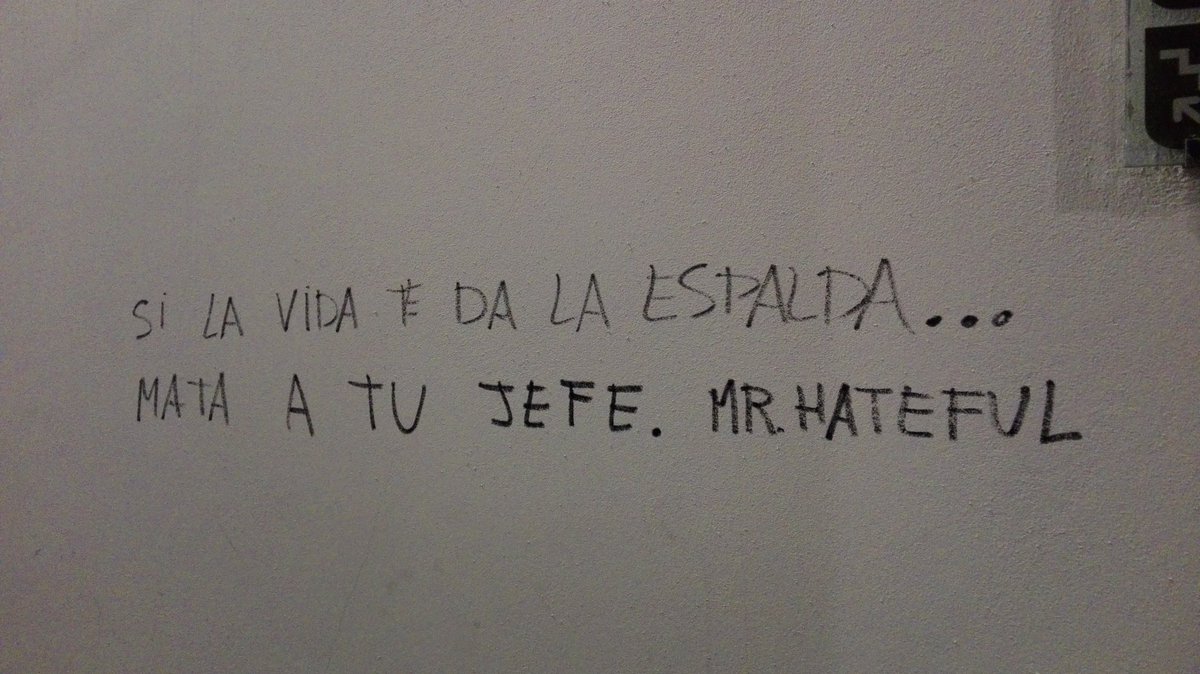 Si LA ViDA TE DA LA ESPALDA...
MATA A TU JEFE. MR.HATEFUL